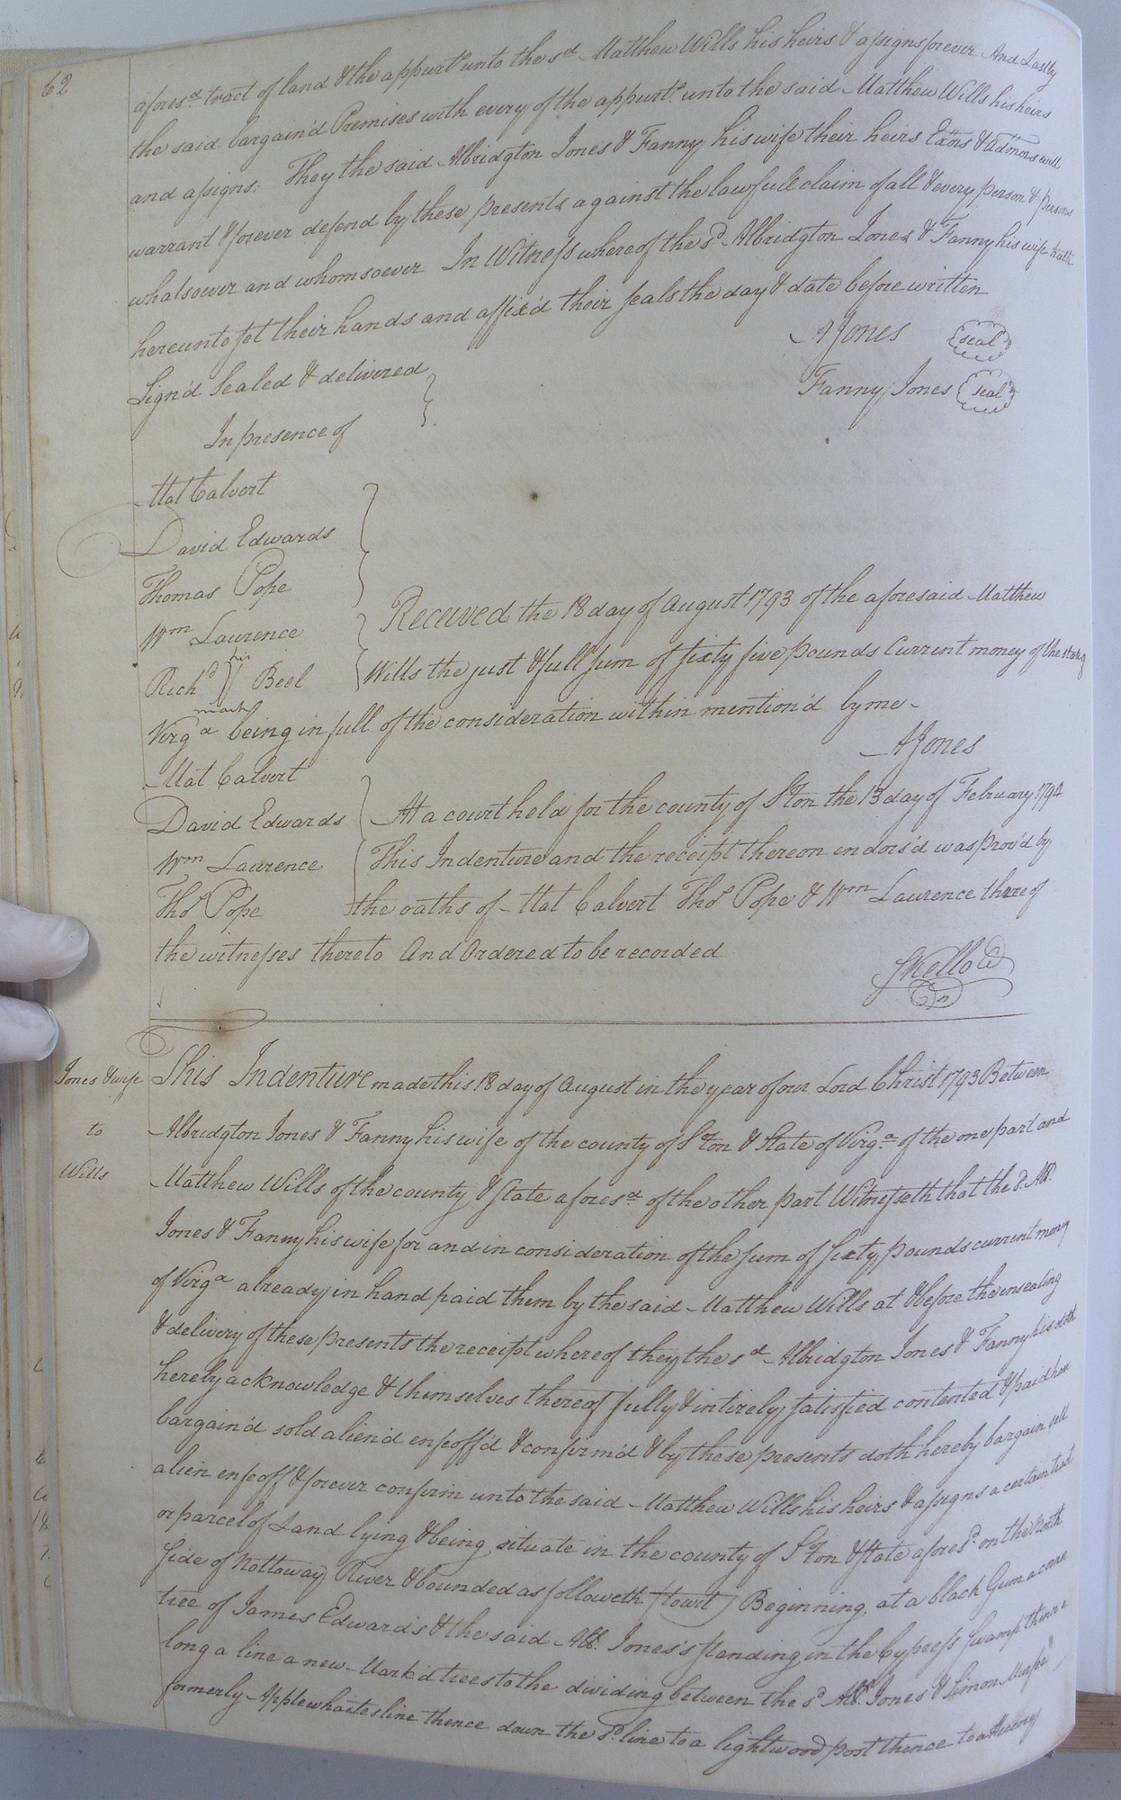 62
afores.d tract of land & the appurt.s unto the s.d Matthew Wills his heirs & assigns forever And Lastly
the said bargain'd Premises with every of the appurt.s unto the said Matthew Wills his heirs
and assigns. They the said Albridgton Jones & Fanny his wife their heirs Exors & admors will
warrant & forever defend by these presents against the lawfull claim of all & every person & persons
whatsoever and whomsoever In Witness whereof the s.d Albridgton Jones & Fanny his wife hath
hereunto set their hands and affix'd their seals the day & date before written
Sign'd Sealed & delivered
In presence of
A Jones seal
Fanny Jones seal
Mat Calvert
David Edwards
Thomas Pope
Wm Laurence
Rich.d his mark Beel
Received the 18 day of August 1793 of the aforesaid Matthew
Wills the just & full sum of sixty five pounds Current money of the state of
Virg.a being in full of the consideration within mention'd by me
A Jones
Mat Calvert
David Edwards
Wm Laurence
Tho.s Pope
At a court held for the county of S.ton the 13 day of February 1794
This Indenture and the receipt thereon endors'd was prov'd by
the oaths of Mat Calvert Tho.s Pope & Wm Laurence three of
the witnesses thereto And Ordered to be recorded
S Kello C
Jones & wife
to
Wills
This Indenture made this 18 day of August in the year of our Lord Christ 1793 Between
Albridgton Jones & Fanny his wife of the county of S.ton & State of Virg.a of the one part and
Matthew Wills of the county & state afores.d of the other part Witnesseth that the s.d Alb.
Jones & Fanny his wife for and in consideration of the sum of sixty pounds current money
of Virg.a already in hand paid them by the said Matthew Wills at & before the ensealing
& delivery of these presents the receipt whereof they the s.d Albridgton Jones & Fanny his wife
hereby acknowledge & themselves thereof fully & intirely satisfied contented & paid have
bargain'd sold alien'd enfeoff'd & confirm'd & by these presents doth hereby bargain sell
alien enfeoff & forever confirm unto the said Matthew Wills his heirs & assigns a certain tract
or parcel of Land lying & being situate in the county of S.ton & state afores.d on the North
side of Nottoway River & bounded as followeth (towit) Beginning at a black Gum a corner
tree of James Edwards & the said Alb. Jones's standing in the Cypress Swamp thence
long a line a new Mark'd trees to the dividing between the s.d Alb. Jones & Simon Murfee
formerly Applewhaites line thence down the s.d line to a lightwood post thence to a Hicory